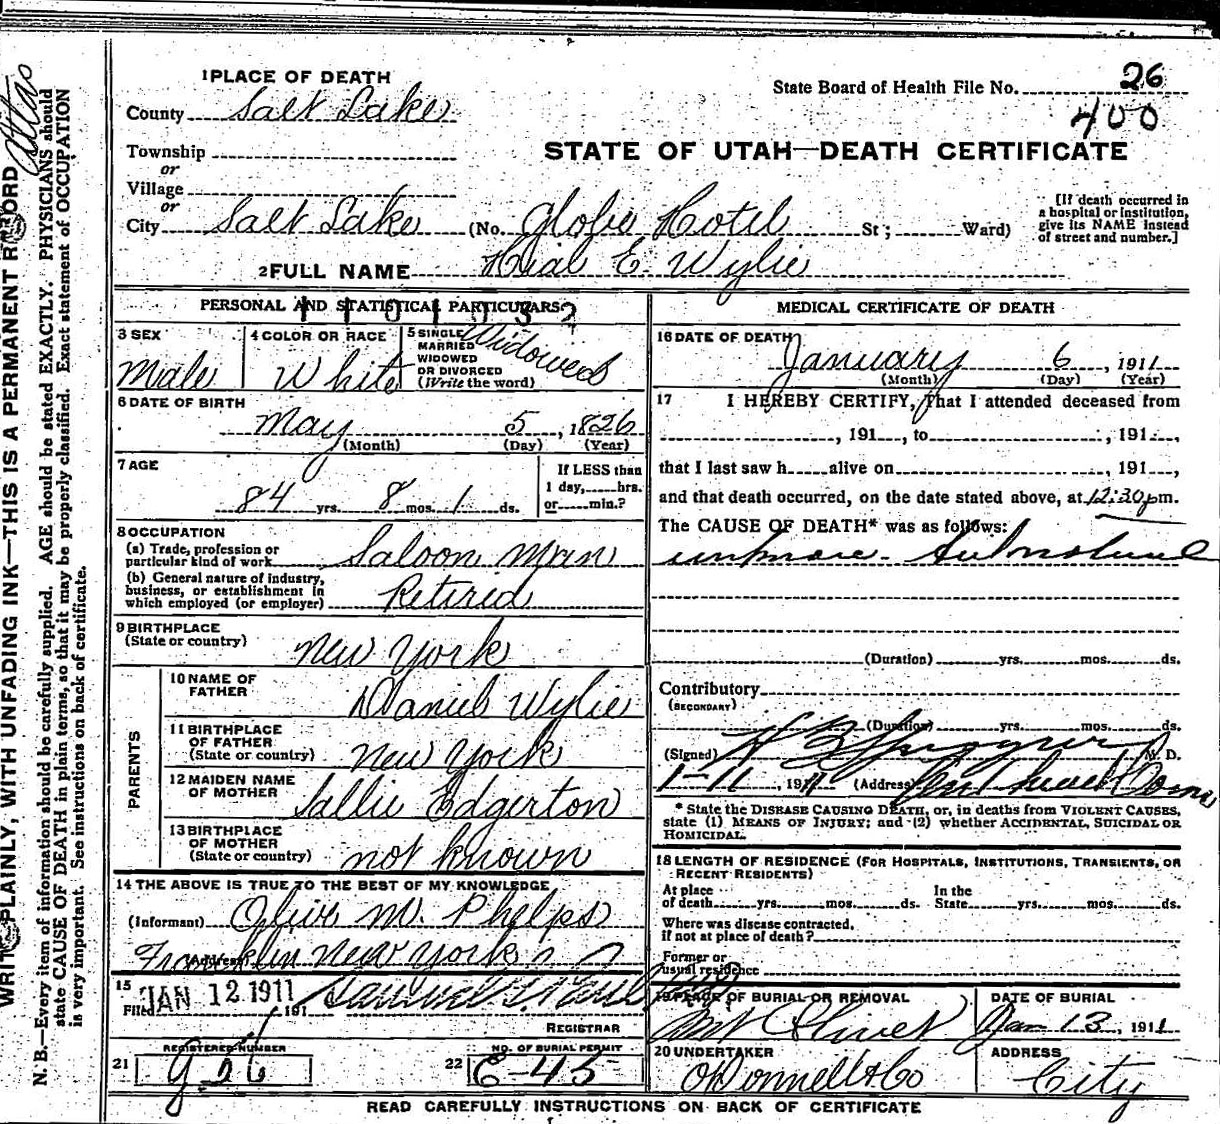 1 PLACE OF DEATH
County Salt Lake
State Board of Health File No. 26
400
STATE OF UTAH—DEATH CERTIFICATE
Township
or
Village
or
City Salt Lake (No. Globe Hotel St; Ward)
[If death occurred in a hospital or institution, give its NAME instead of street and number.]
2 FULL NAME Hial E. Wylie
PERSONAL AND STATISTICAL PARTICULARS
3 SEX Male
4 COLOR OR RACE White
5 SINGLE MARRIED WIDOWED OR DIVORCED (Write the word) Widowed
6 DATE OF BIRTH
May 5, 1826
(Month) (Day) (Year)
7 AGE
84 yrs. 8 mos. 1 ds.
If LESS than 1 day, hrs. or min.?
8 OCCUPATION
(a) Trade, profession or particular kind of work Saloon Man
(b) General nature of industry, business, or establishment in which employed (or employer) Retired
9 BIRTHPLACE
(State or country) New York
PARENTS
10 NAME OF FATHER Daniel Wylie
11 BIRTHPLACE OF FATHER (State or country) New York
12 MAIDEN NAME OF MOTHER Sallie Edgerton
13 BIRTHPLACE OF MOTHER (State or country) not known
14 THE ABOVE IS TRUE TO THE BEST OF MY KNOWLEDGE
(Informant) Olive M. Phelps
(Address) Franklin New York
15
Filed JAN 12 1911, 191
REGISTRAR
REGISTERED NUMBER
21
NO. OF BURIAL PERMIT
22 E-45
MEDICAL CERTIFICATE OF DEATH
16 DATE OF DEATH
January 6, 1911
(Month) (Day) (Year)
17 I HEREBY CERTIFY, That I attended deceased from
, 191 , to , 191 ,
that I last saw h alive on , 191 ,
and that death occurred, on the date stated above, at 12:30 pm.
The CAUSE OF DEATH* was as follows:
(Duration) yrs. mos. ds.
Contributory
(SECONDARY)
(Duration) yrs. mos. ds.
(Signed) M. D.
1-11, 1911 (Address)
* State the DISEASE CAUSING DEATH, or, in deaths from VIOLENT CAUSES, state (1) MEANS OF INJURY; and (2) whether ACCIDENTAL, SUICIDAL OR HOMICIDAL.
18 LENGTH OF RESIDENCE (FOR HOSPITALS, INSTITUTIONS, TRANSIENTS, OR RECENT RESIDENTS)
At place of death yrs. mos. ds. In the State yrs. mos. ds.
Where was disease contracted, if not at place of death?
Former or usual residence
19 PLACE OF BURIAL OR REMOVAL
Mt Olivet
DATE OF BURIAL
Jan 13, 1911
20 UNDERTAKER
O'Donnell & Co
ADDRESS
City
READ CAREFULLY INSTRUCTIONS ON BACK OF CERTIFICATE
WRITE PLAINLY, WITH UNFADING INK—THIS IS A PERMANENT RECORD
N. B.—Every item of information should be carefully supplied. AGE should be stated EXACTLY. PHYSICIANS should
state CAUSE OF DEATH in plain terms, so that it may be properly classified. Exact statement of OCCUPATION
is very important. See instructions on back of certificate.